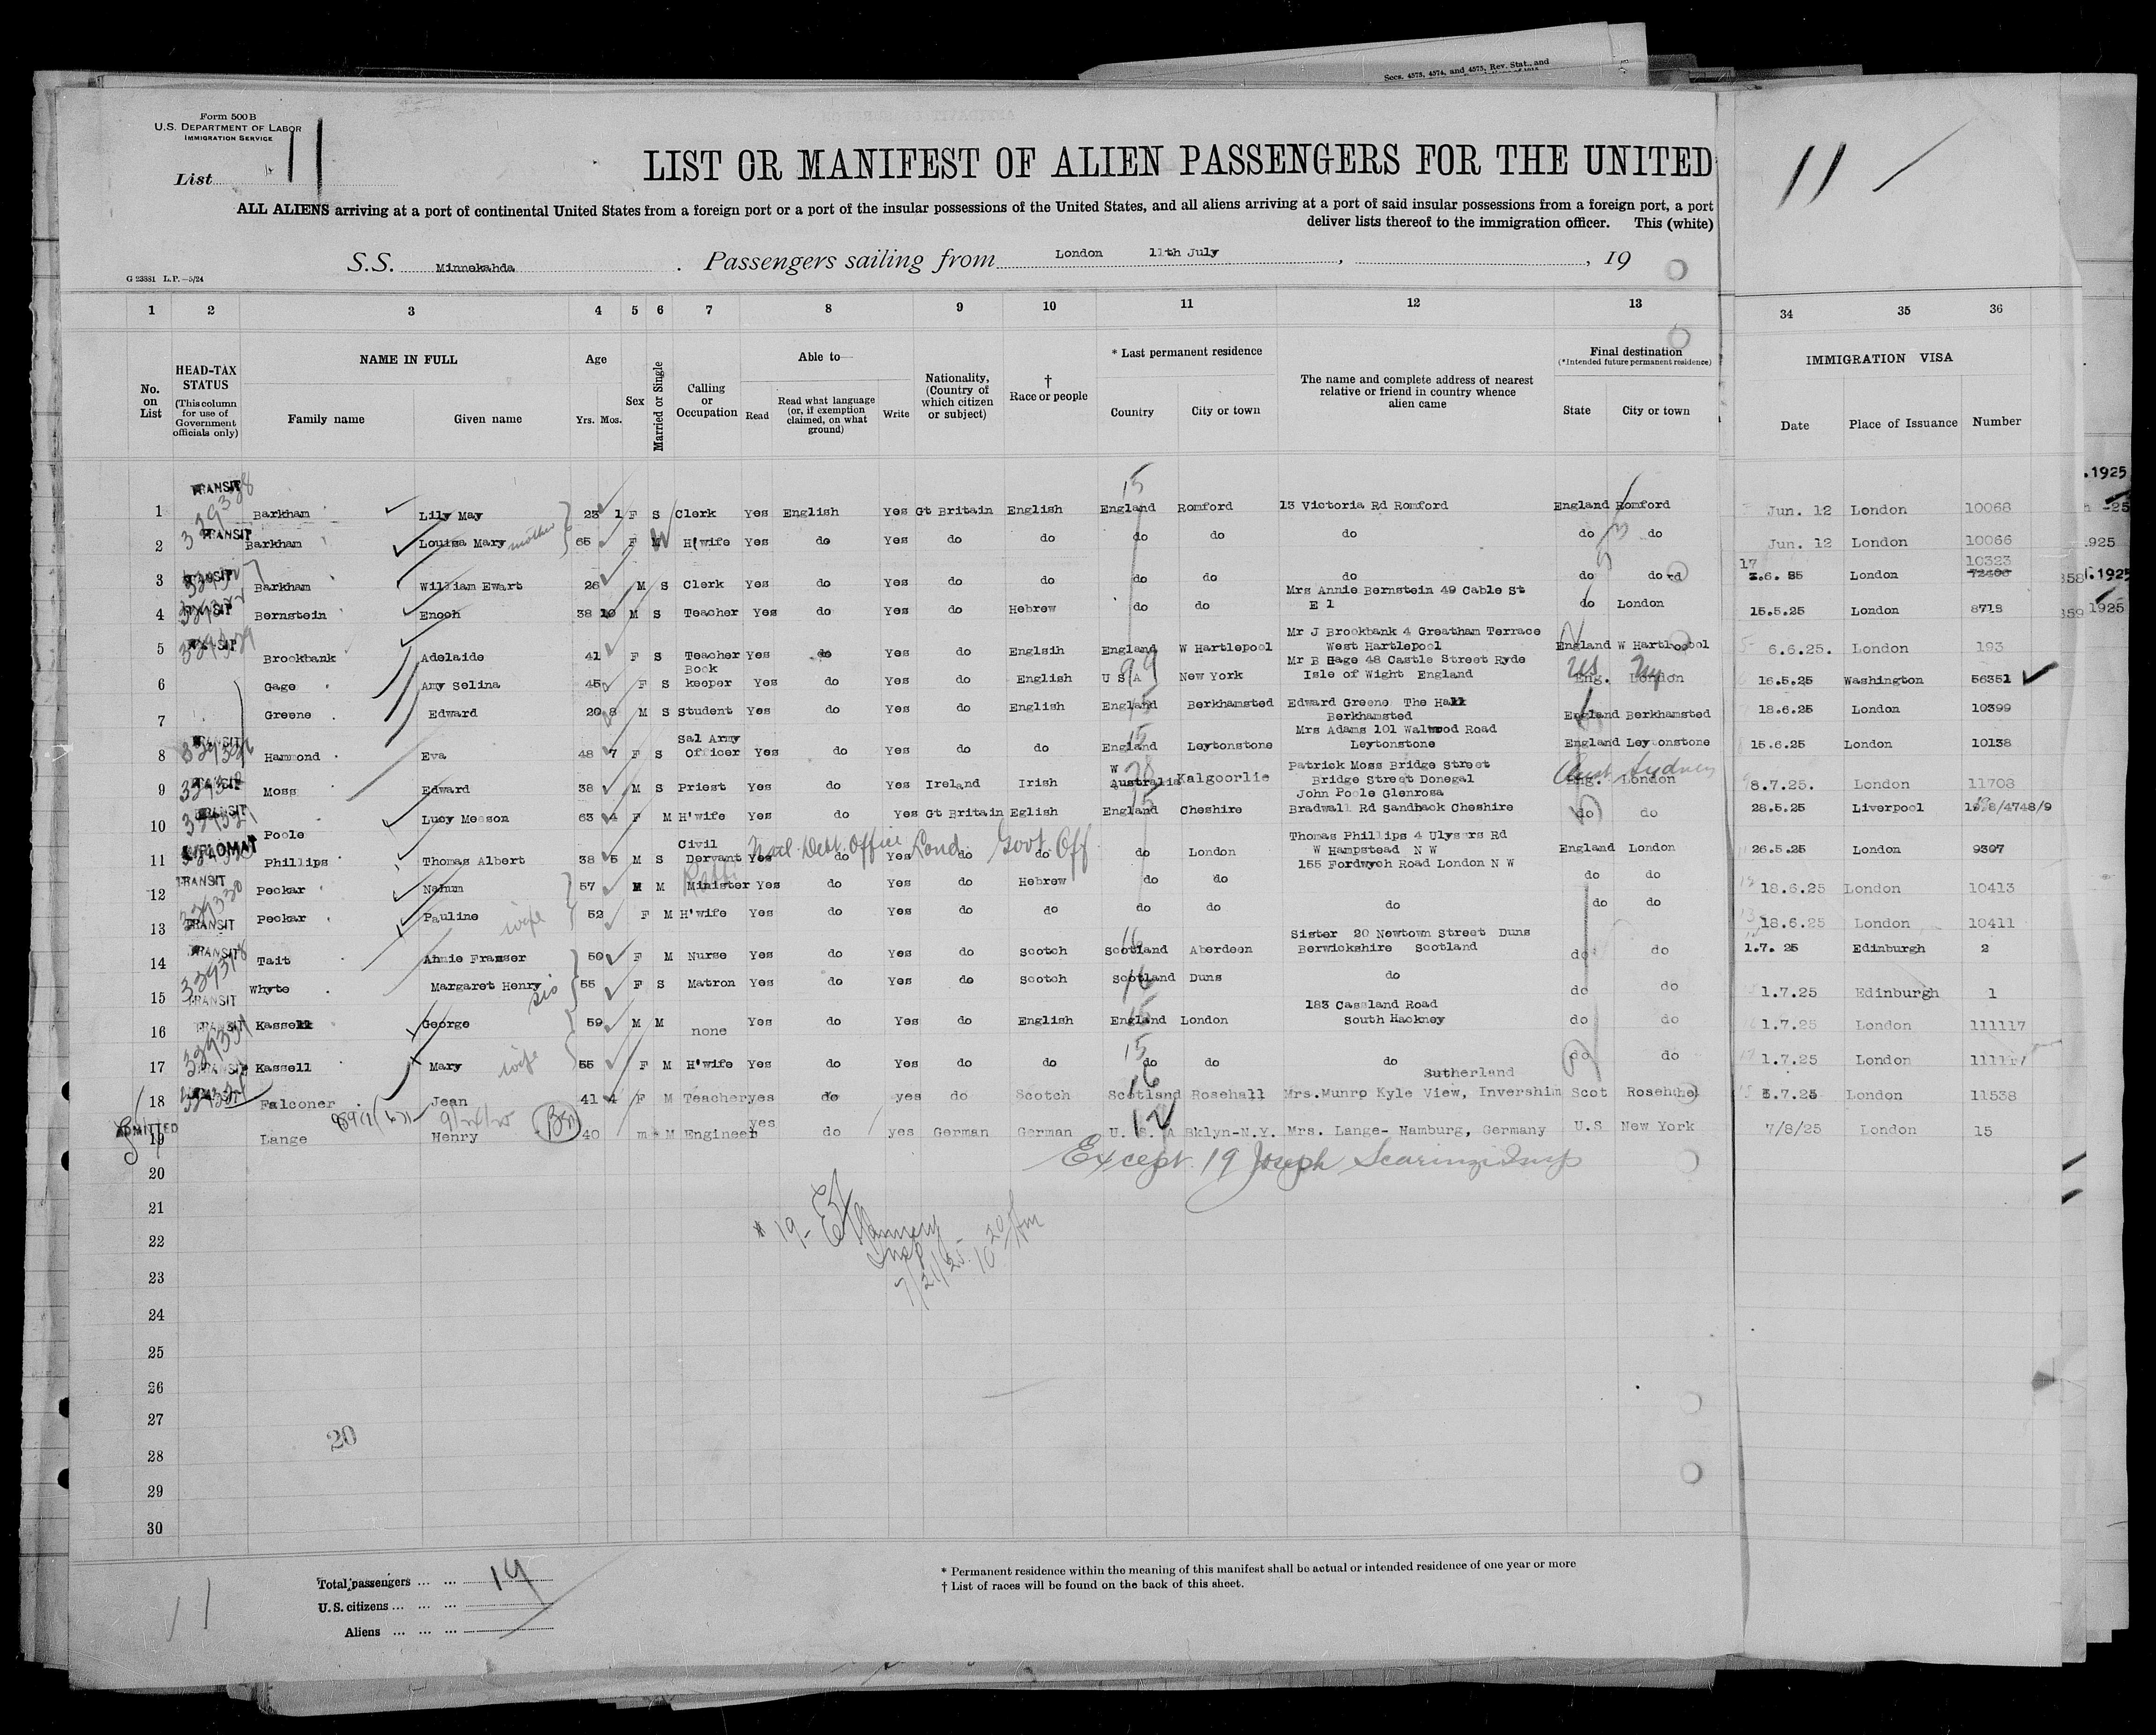 Secs. 4573, 4574, and 4575, Rev. Stat., and
Form 500B
U.S. DEPARTMENT OF LABOR
IMMIGRATION SERVICE
List 11
LIST OR MANIFEST OF ALIEN PASSENGERS FOR THE UNITED
11
ALL ALIENS arriving at a port of continental United States from a foreign port or a port of the insular possessions of the United States, and all aliens arriving at a port of said insular possessions from a foreign port, a port
deliver lists thereof to the immigration officer. This (white)
S.S. Minnekahda. Passengers sailing from London 11th July, , 19
G 23881 L.P.—5/24
1 2 3 4 5 6 7 8 9 10 11 12 13 34 35 36
No. on List
HEAD-TAX STATUS
(This column for use of Government officials only)
NAME IN FULL
Family name Given name
Age
Yrs. Mos.
Sex
Married or Single
Calling or Occupation
Able to—
Read
Read what language (or, if exemption claimed, on what ground)
Write
Nationality, (Country of which citizen or subject)
† Race or people
* Last permanent residence
Country City or town
The name and complete address of nearest relative or friend in country whence alien came
Final destination
(*Intended future permanent residence)
State City or town
IMMIGRATION VISA
Date Place of Issuance Number
1 TRANSIT Barkham Lily May 23 1 F S Clerk Yes English Yes Gt Britain English England Romford 13 Victoria Rd Romford England Romford Jun. 12 London 10068
2 TRANSIT Barkham Louisa Mary mother 65 F W H'wife Yes do Yes do do do do do do do Jun. 12 London 10066
3 TRANSIT Barkham William Ewart 26 M S Clerk Yes do Yes do do do do do do do 17.6. 25 London 10323
4 TRANSIT Bernstein Enoch 38 10 M S Teacher Yes do Yes do Hebrew do do Mrs Annie Bernstein 49 Cable St E 1 do London 15.5.25 London 8718
5 TRANSIT Brookbank Adelaide 41 F S Teacher Yes do Yes do Englsih England W Hartlepool Mr J Brookbank 4 Greatham Terrace West Hartlepool England W Hartlpool 6.6.25. London 193
6 Gage Amy Selina 45 F S Book keeper Yes do Yes do English U S A New York Mr B Gage 48 Castle Street Ryde Isle of Wight England Eng. London US NY 16.5.25 Washington 56351
7 Greene Edward 20 8 M S Student Yes do Yes do English England Berkhamsted Edward Greene The Hall Berkhamsted England Berkhamsted 18.6.25 London 10399
8 TRANSIT Hammond Eva 48 7 F S Sal Army Officer Yes do Yes do do England Leytonstone Mrs Adams 101 Walwood Road Leytonstone England Leytonstone 15.6.25 London 10138
9 TRANSIT Moss Edward 38 M S Priest Yes do Yes Ireland Irish W Australia Kalgoorlie Patrick Moss Bridge Street Bridge Street Donegal Eng. London Aust Sydney 8.7.25. London 11708
10 TRANSIT Poole Lucy Meason 63 4 F M H'wife Yes do Yes Gt Britain Eglish England Cheshire John Poole Glenrosa Bradwall Rd Sandback Cheshire do do 28.5.25 Liverpool
11 DIPLOMAT Phillips Thomas Albert 38 5 M S Civil Servant Yes do Yes do do do London Thomas Phillips 4 Ulysses Rd W Hampstead N W England London 26.5.25 London 9307
Natl Debt Office Lond Govt Off
12 TRANSIT Peckar Nahum 57 M M Minister Rabbi Yes do Yes do Hebrew do do 155 Fordwych Road London N W do do 18.6.25 London 10413
13 TRANSIT Peckar Pauline wife 52 F M H'wife Yes do Yes do do do do do do do 18.6.25 London 10411
14 TRANSIT Tait Annie Franser 50 F M Nurse Yes do Yes do Scotch Scotland Aberdeen Sister 20 Newtown Street Duns Berwickshire Scotland do do 1.7. 25 Edinburgh 2
15 TRANSIT Whyte Margaret Henry sis 55 F S Matron Yes do Yes do Scotch Scotland Duns do do do 1.7.25 Edinburgh 1
16 TRANSIT Kassell George 59 M M none Yes do Yes do English England London 183 Cassland Road South Hackney do do 1.7.25 London 111117
17 TRANSIT Kassell Mary wife 55 F M H'wife Yes do Yes do do do do do do do 1.7.25 London 111117
18 Falconer Jean 41 4 F M Teacher yes do yes do Scotch Scotland Rosehall Mrs. Munro Kyle View, Invershim Sutherland Scot Rosehhel 3.7.25 London 11538
19 ADMITTED Lange Henry 40 m M Engineer yes do yes German German U. S. A Bklyn-N.Y. Mrs. Lange- Hamburg, Germany U.S New York 7/8/25 London 15
Except 19 Joseph
20
21
# 19-
22
Insp
7/21/25 10 20 Am
23
24
25
26
27
20
28
29
30
Total passengers ... ... 19
U. S. citizens ... ... ...
Aliens ... ... ...
11
* Permanent residence within the meaning of this manifest shall be actual or intended residence of one year or more
† List of races will be found on the back of this sheet.